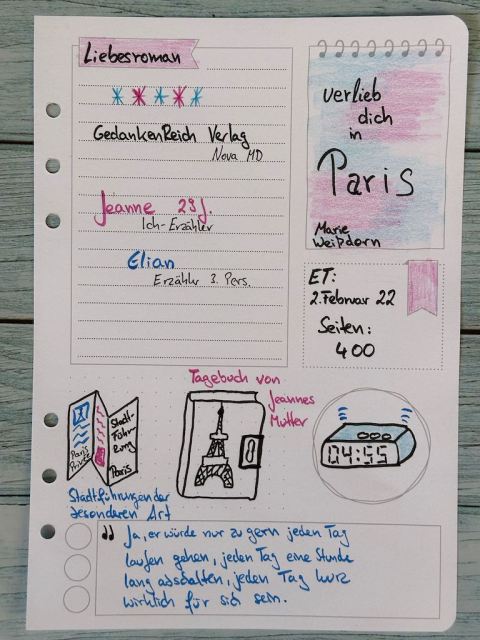 Liebesroman
GedankenReich Verlag
Nova MD
Jeanne 29 J.
Ich-Erzähler
Elian
Erzähler 3. Pers.
verlieb
dich
in
Paris
Marie
Weißdorn
ET:
2. Februar 22
Seiten:
400
Paris
Privée
Stadt-
Führ-
ung
Paris
Stadtführungen der
besonderen Art
Tagebuch von
Jeannes
Mutter
04:55
" Ja, er würde nur zu gern jeden Tag
laufen gehen, jeden Tag eine Stunde
lang abschalten, jeden Tag kurz
wirklich für sich sein.